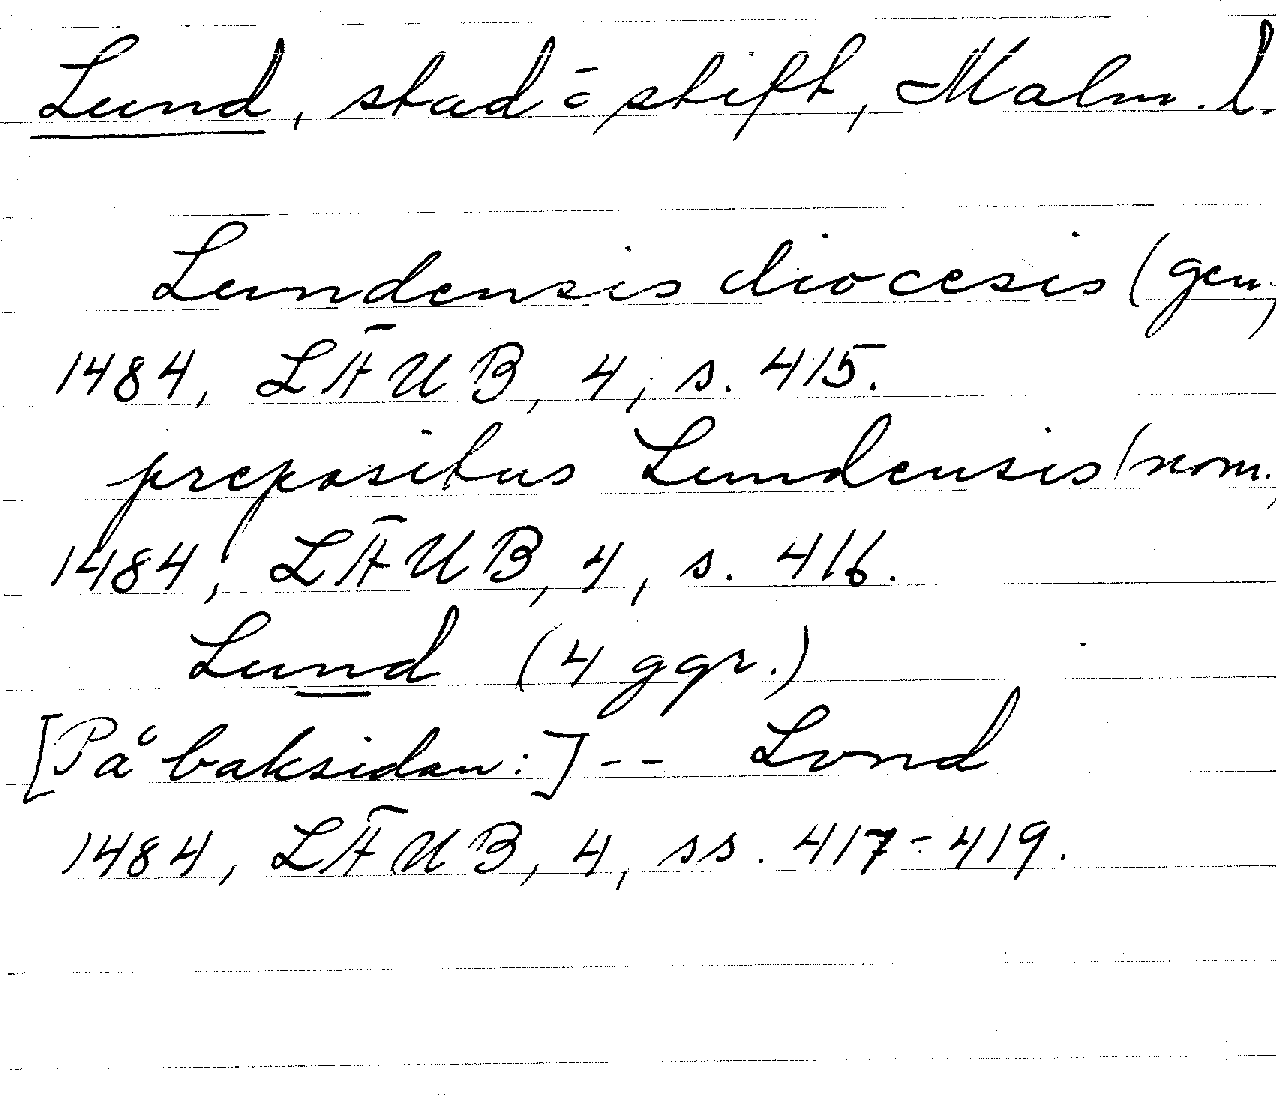 Lund, stad = stift, Malm. l.
Lundensis diocesis (gen.,
1484, LÄUB, 4, s. 415.
prepositus Lundensis (nom.,
1484, LÄUB, 4, s. 416.
Lund (4 ggr.)
[På baksidan:] -- Lvnd
1484, LÄUB, 4, ss. 417-419.